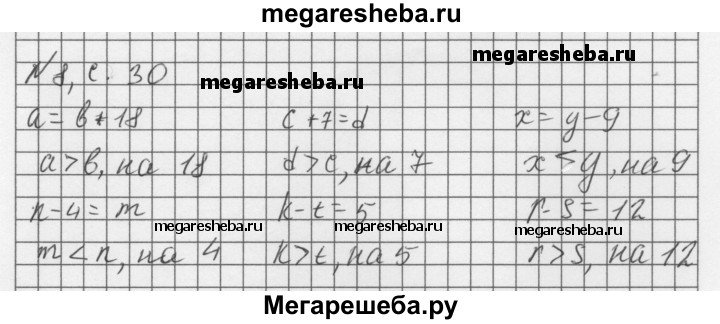 megaresheba.ru
megaresheba.ru
N 8, с. 30
megaresheba.ru
a = b + 18 c + 7 = d x = y - 9
a > b, на 18 d > c, на 7 x < y, на 9
n - 4 = m k - t = 5 r - s = 12
megaresheba.ru megaresheba.ru megaresheba.ru
m < n, на 4 k > t, на 5 r > s, на 12
Мегарешеба.ру